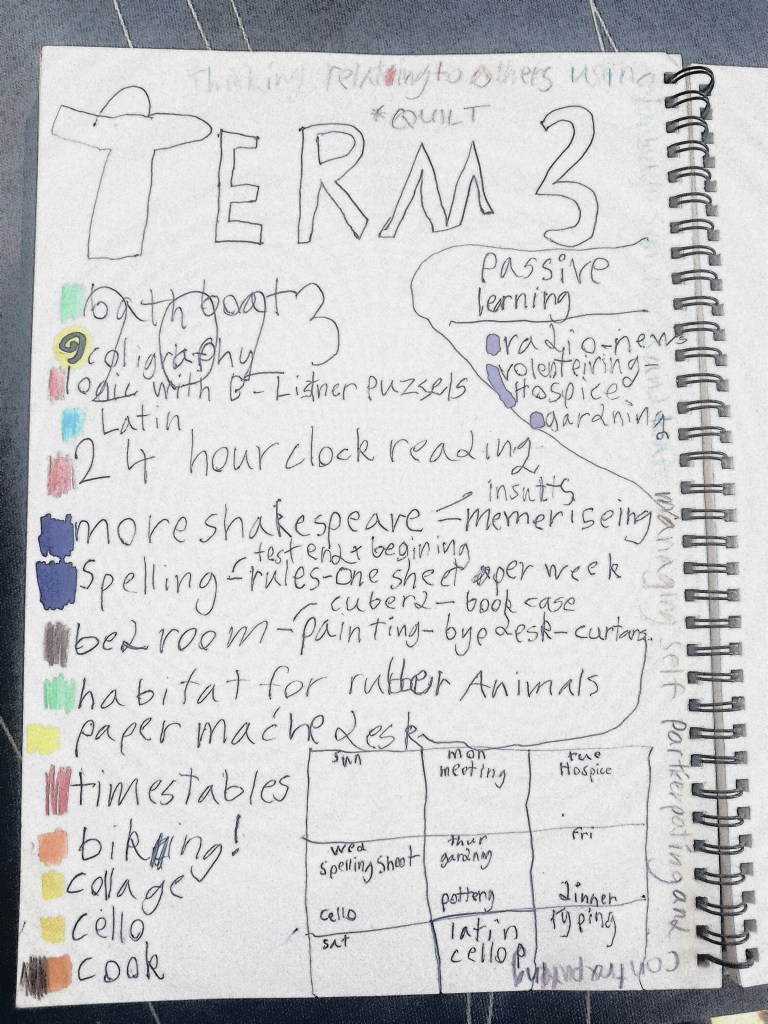 Thinking relating to others using
*QUILT
TERM 3
passive
learning
radio-news
volenteiring-
Hospice
gardning
bath boat
coligraphy
logic with G-Listner puzsels
Latin
24 hour clock reading
insults
more shakespeare - memeriseing
test end & begining
Spelling - rules - one sheet per week
cuberd - book case
bedroom - painting - bye desk - curtans.
habitat for rubber Animals
paper mache desk
timestables
biking!
collage
cello
cook
sun
mon
meeting
tue
Hospice
wed
spelling shoot
cello
thur
gardnig
pottery
fri
dinner
sat
latin
cello p
typing
managing self partkerpating and
contraputing